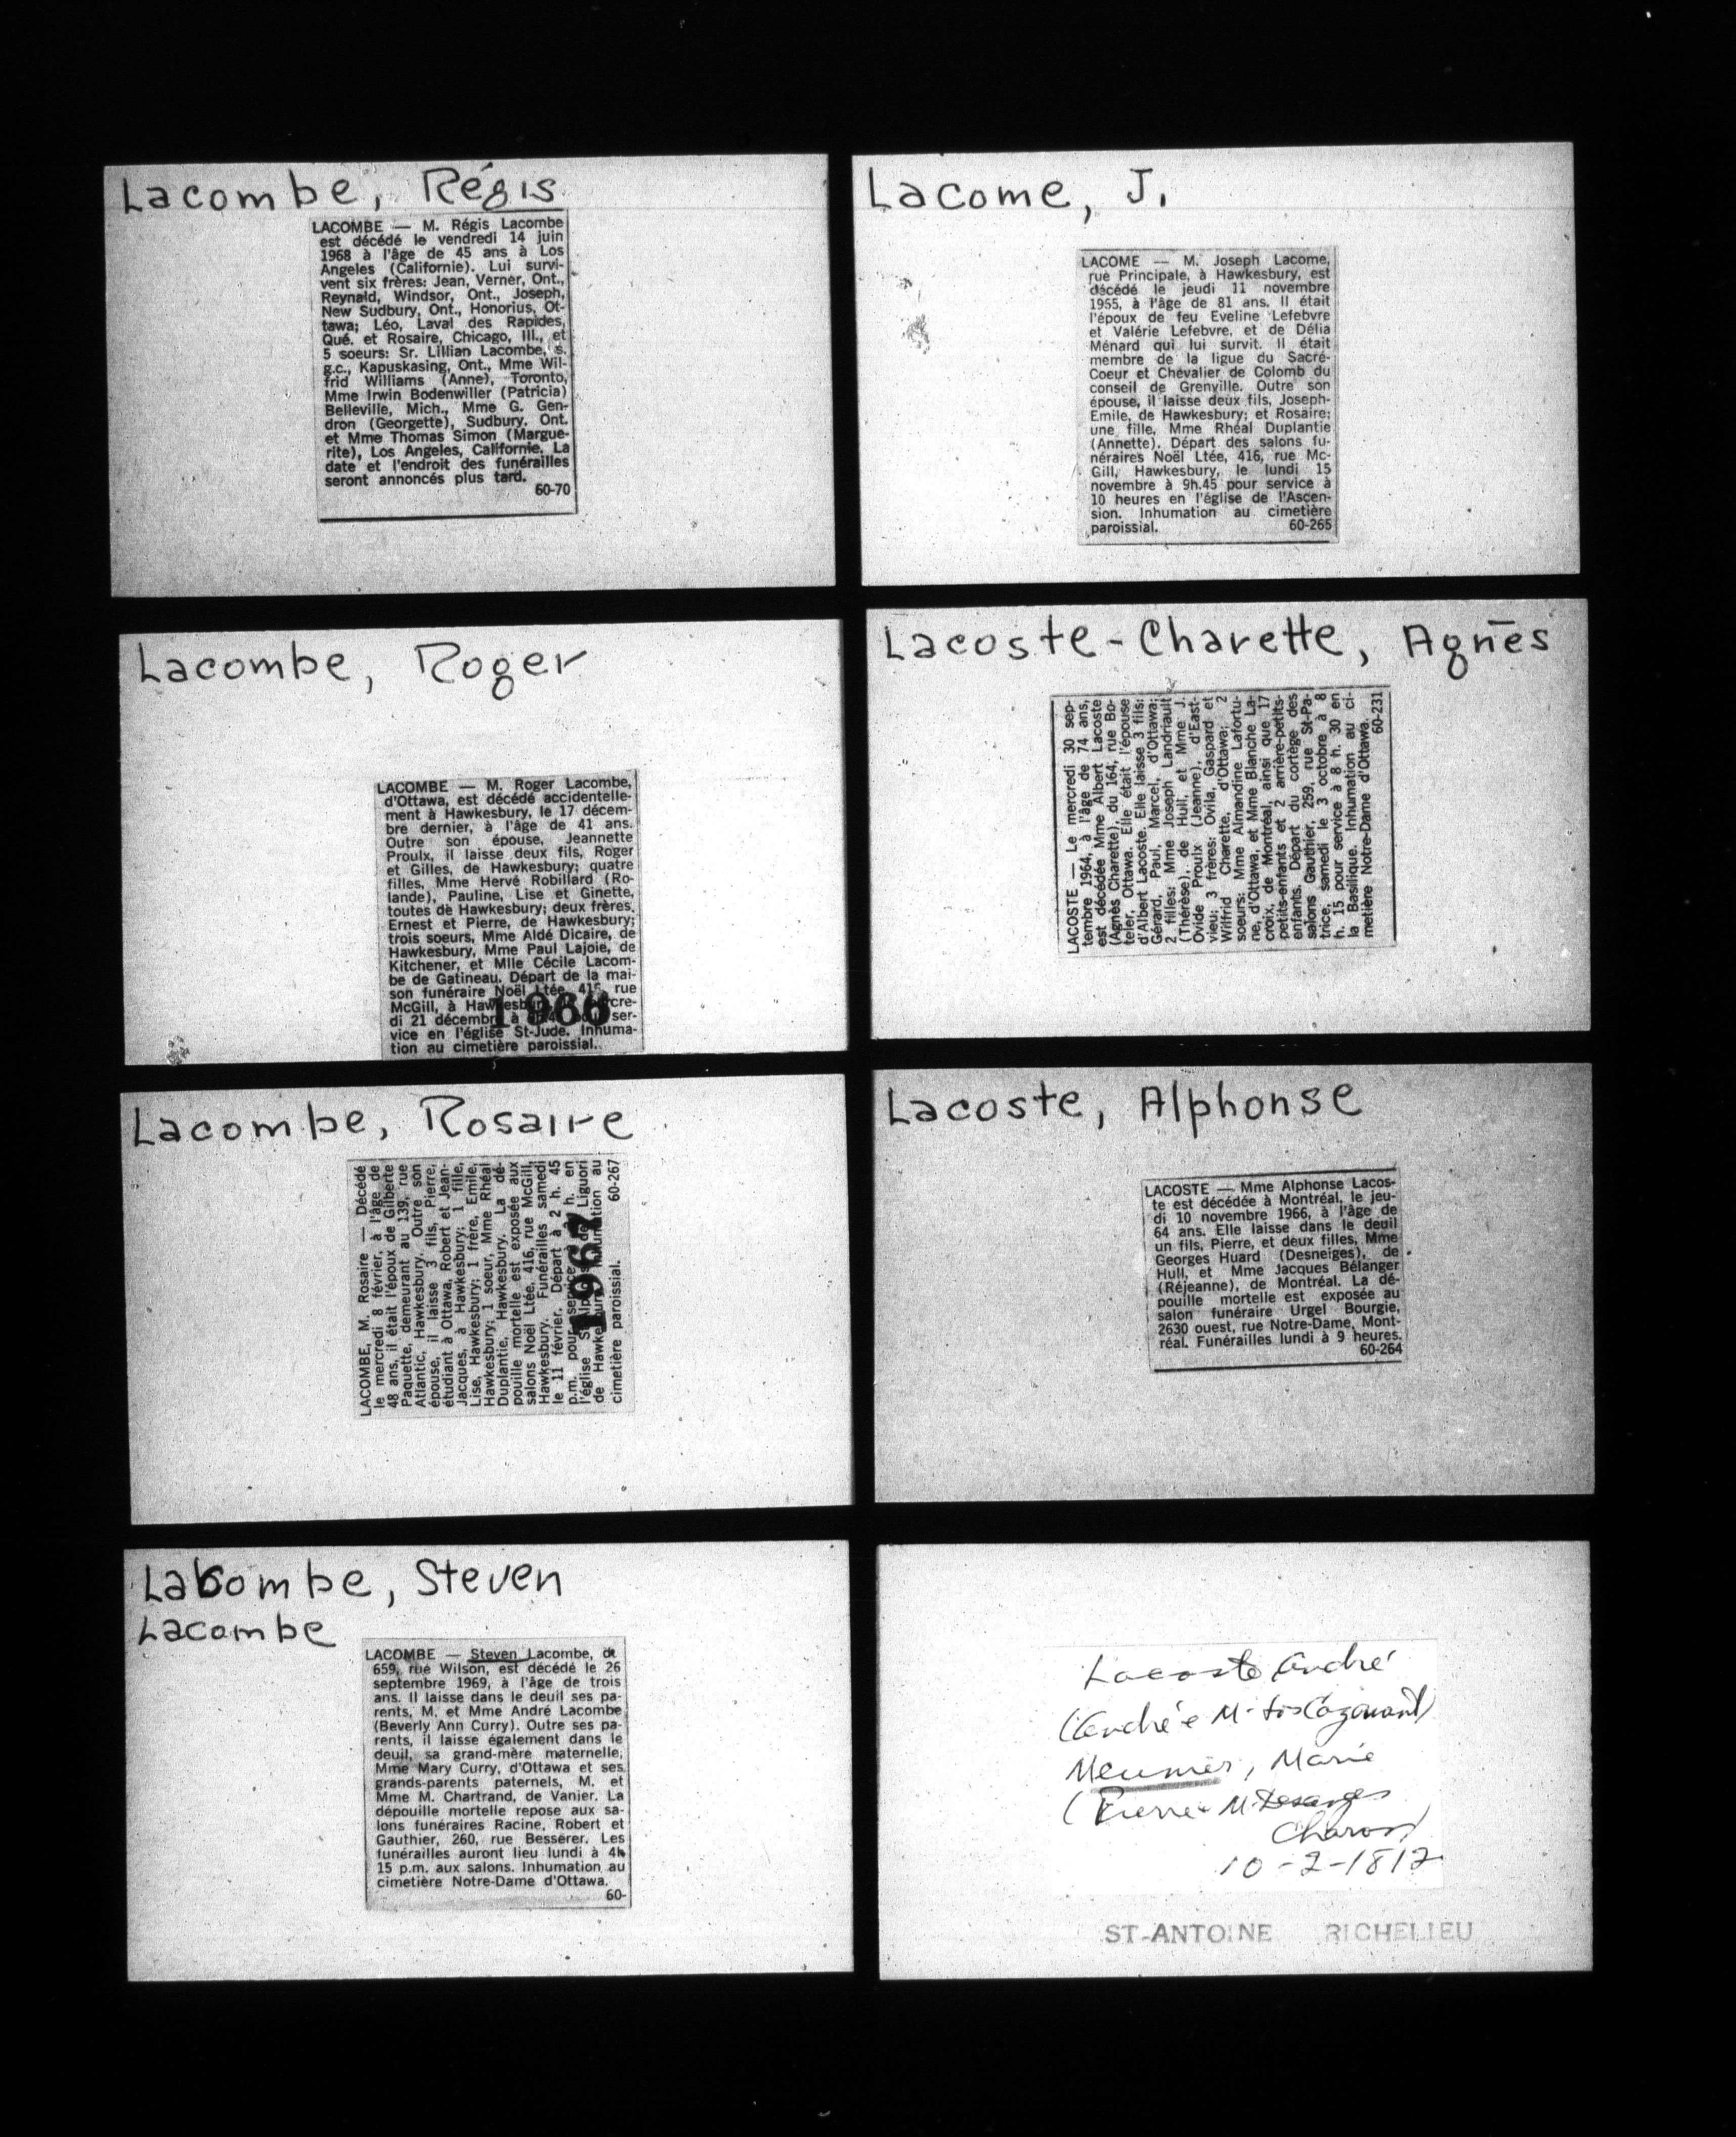 Lacombe, Régis
LACOMBE — M. Régis Lacombe
est décédé le vendredi 14 juin
1968 à l'âge de 45 ans à Los
Angeles (Californie). Lui survi-
vent six frères: Jean, Verner, Ont.,
Reynald, Windsor, Ont., Joseph,
New Sudbury, Ont., Honorius, Ot-
tawa; Léo, Laval des Rapides,
Qué. et Rosaire, Chicago, Ill., et
5 soeurs: Sr. Lillian Lacombe, s.
g.c., Kapuskasing, Ont., Mme Wil-
frid Williams (Anne), Toronto,
Mme Irwin Bodenwiller (Patricia)
Belleville, Mich., Mme G. Gen-
dron (Georgette), Sudbury, Ont.
et Mme Thomas Simon (Margue-
rite), Los Angeles, Californie. La
date et l'endroit des funérailles
seront annoncés plus tard.
60-70
Lacombe, Roger
LACOMBE — M. Roger Lacombe,
d'Ottawa, est décédé accidentelle-
ment à Hawkesbury, le 17 décem-
bre dernier, à l'âge de 41 ans.
Outre son épouse, Jeannette
Proulx, il laisse deux fils, Roger
et Gilles, de Hawkesbury; quatre
filles, Mme Hervé Robillard (Ro-
lande), Pauline, Lise et Ginette,
toutes de Hawkesbury; deux frères,
Ernest et Pierre, de Hawkesbury;
trois soeurs, Mme Aldé Dicaire, de
Hawkesbury, Mme Paul Lajoie, de
Kitchener, et Mlle Cécile Lacom-
be de Gatineau. Départ de la mai-
son funéraire Noël Ltée, 416, rue
McGill, à Hawkesbury,
di 21 décembre à ser-
vice en l'église St-Jude. Inhuma-
tion au cimetière paroissial.
1966
Lacombe, Rosaire
LACOMBE, M. Rosaire — Décédé
le mercredi 8 février, à l'âge de
48 ans, il était l'époux de Gilberte
Paquette, demeurant au 139, rue
Atlantic, Hawkesbury. Outre son
épouse, il laisse 3 fils, Pierre,
étudiant à Ottawa, Robert et Jean-
Jacques, à Hawkesbury; 1 fille,
Lise, Hawkesbury; 1 frère, Emile,
Hawkesbury; 1 soeur, Mme Rhéal
Duplantie, Hawkesbury. La dé-
pouille mortelle est exposée aux
salons Noël Ltée, 416, rue McGill,
Hawkesbury. Funérailles samedi
le 11 février. Départ à 2 h. 45
p.m. pour service à h. en
l'église St-Alphonse de Liguori
de Hawkesbury. Inhumation au
cimetière paroissial. 60-267
1967
Labombe, Steven
Lacombe
LACOMBE — Steven Lacombe, de
659, rue Wilson, est décédé le 26
septembre 1969, à l'âge de trois
ans. Il laisse dans le deuil ses pa-
rents, M. et Mme André Lacombe
(Beverly Ann Curry). Outre ses pa-
rents, il laisse également dans le
deuil, sa grand-mère maternelle,
Mme Mary Curry, d'Ottawa et ses
grands-parents paternels, M. et
Mme M. Chartrand, de Vanier. La
dépouille mortelle repose aux sa-
lons funéraires Racine, Robert et
Gauthier, 260, rue Besserer. Les
funérailles auront lieu lundi à 4h
15 p.m. aux salons. Inhumation au
cimetière Notre-Dame d'Ottawa.
60-
Lacome, J.
LACOME — M. Joseph Lacome,
rue Principale, à Hawkesbury, est
décédé le jeudi 11 novembre
1955, à l'âge de 81 ans. Il était
l'époux de feu Eveline Lefebvre
et Valérie Lefebvre, et de Délia
Ménard qui lui survit. Il était
membre de la ligue du Sacré-
Coeur et Chevalier de Colomb du
conseil de Grenville. Outre son
épouse, il laisse deux fils, Joseph-
Emile, de Hawkesbury; et Rosaire;
une fille, Mme Rhéal Duplantie
(Annette). Départ des salons fu-
néraires Noël Ltée, 416, rue Mc-
Gill, Hawkesbury, le lundi 15
novembre à 9h.45 pour service à
10 heures en l'église de l'Ascen-
sion. Inhumation au cimetière
paroissial. 60-265
Lacoste-Charette, Agnès
LACOSTE — Le mercredi 30 sep-
tembre 1964, à l'âge de 74 ans,
est décédée Mme Albert Lacoste
(Agnès Charette), du 164, rue Bo-
teler, Ottawa. Elle était l'épouse
d'Albert Lacoste. Elle laisse 3 fils:
Gérard, Paul, Marcel, d'Ottawa;
2 filles: Mme Joseph Landriault
(Thérèse), de Hull, et Mme J.
Ovide Proulx (Jeanne), d'East-
view; 3 frères: Ovila, Gaspard et
Wilfrid Charette, d'Ottawa; 2
soeurs: Mme Almandine Lafortu-
ne, d'Ottawa, et Mme Blanche La-
croix, de Montréal, ainsi que 17
petits-enfants et 2 arrière-petits-
enfants. Départ du cortège des
salons Gauthier, 259, rue St-Pa-
trice, samedi le 3 octobre à 8
h. 15 pour service à 8 h. 30 en
la Basilique. Inhumation au ci-
metière Notre-Dame d'Ottawa.
60-231
Lacoste, Alphonse
LACOSTE — Mme Alphonse Lacos-
te est décédée à Montréal, le jeu-
di 10 novembre 1966, à l'âge de
64 ans. Elle laisse dans le deuil
un fils, Pierre, et deux filles, Mme
Georges Huard (Desneiges), de
Hull, et Mme Jacques Bélanger
(Réjeanne), de Montréal. La dé-
pouille mortelle est exposée au
salon funéraire Urgel Bourgie,
2630 ouest, rue Notre-Dame, Mont-
réal. Funérailles lundi à 9 heures.
60-264
Lacoste André
(André & M.
Meunier, Marie
(Pierre & M. Desanges
Charon)
10-2-1812
ST-ANTOINE RICHELIEU